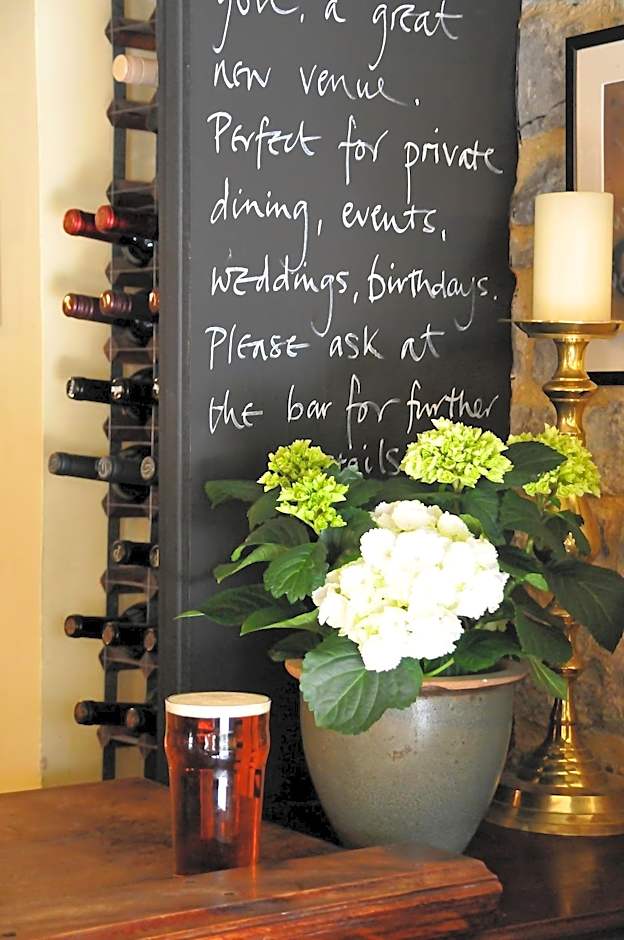 you, a great
new venue.
Perfect for private
dining, events,
weddings, birthdays.
Please ask at
the bar for further